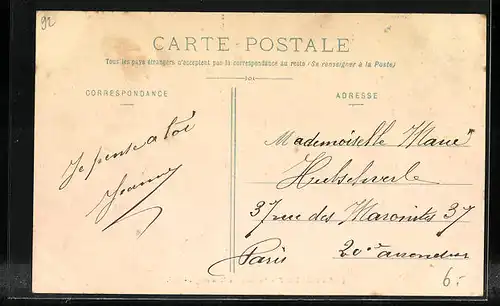 92
CARTE POSTALE
Tous les pays étrangers n'acceptent pas la correspondance au recto (Se renseigner à la Poste)
CORRESPONDANCE
ADRESSE
Je pense a toi
Jeanne
Mademoiselle Marie
37 rue des Maronites 37
Paris 20e
6.-